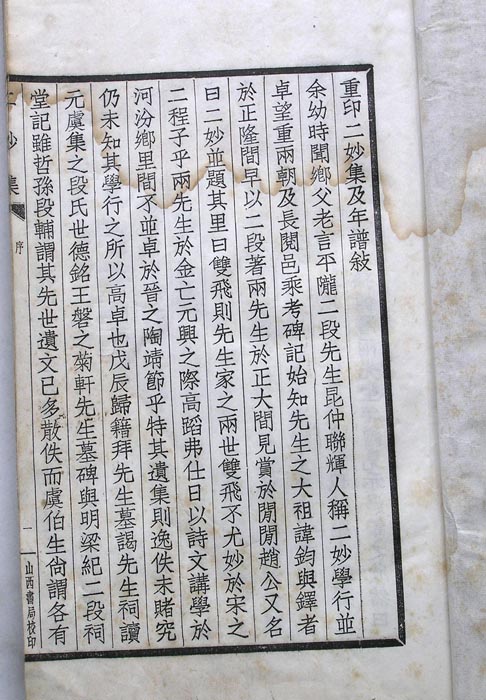 重印二妙集及年譜敘
余幼時聞鄉父老言平隴二段先生昆仲聯輝人稱二妙學行並
卓望重兩朝及長閱邑乘考碑記始知先生之大祖諱鈞與鐸者
於正隆間早以二段著兩先生於正大間見賞於閒閒趙公又名
曰二妙並題其里曰雙飛則先生家之兩世雙飛不尤妙於宋之
二程子乎兩先生於金亡元興之際高蹈弗仕日以詩文講學於
河汾鄉里間不並卓於晉之陶靖節乎特其遺集則逸佚未賭究
仍未知其學行之所以高卓也戊辰歸籍拜先生墓謁先生祠讀
元虞集之段氏世德銘王磐之菊軒先生墓碑與明梁紀二段祠
堂記雖哲孫段輔謂其先世遺文已多散佚而虞伯生尚謂各有
二妙集
序
一
山西書局校印